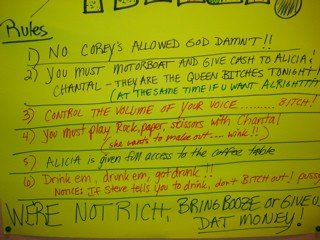 Rules
1) NO COREY'S ALLOWED GOD DAMN'T!!
2) YOU MUST MOTORBOAT AND GIVE CASH TO ALICIA &
CHANTAL - THEY ARE THE QUEEN BITCHES TONIGHT!
(AT THE SAME TIME IF U WANT ALRIGHTTTT
3) CONTROL THE VOLUME OF YOUR VOICE .......... BITCH!
4) You must play Rock, paper, scissors with Chantal
(she wants to make out.... wink!!)
5) ALICIA is given full access to the coffee table
6) Drink em, drunk em, got drunk!!
NOTICE: If Steve tells you to drink, don't BITCH OUT!
WE'RE NOT RICH, BRING BOOZE or GIVE US
DAT MONEY!